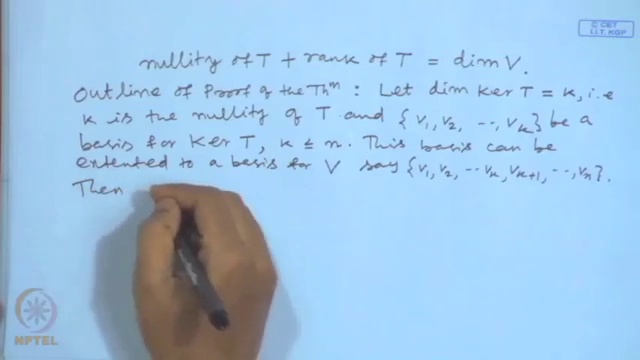 © CET
I.I.T. KGP
nullity of T + rank of T = dim V.
Outline of Proof of the Thm : Let dim Ker T = k, i.e
k is the nullity of T and {v1, v2, ..., vk} be a
basis for Ker T, k ≤ n. This basis can be
extented to a basis for V say {v1, v2, ... vk, vk+1, ..., vn}.
Then
NPTEL